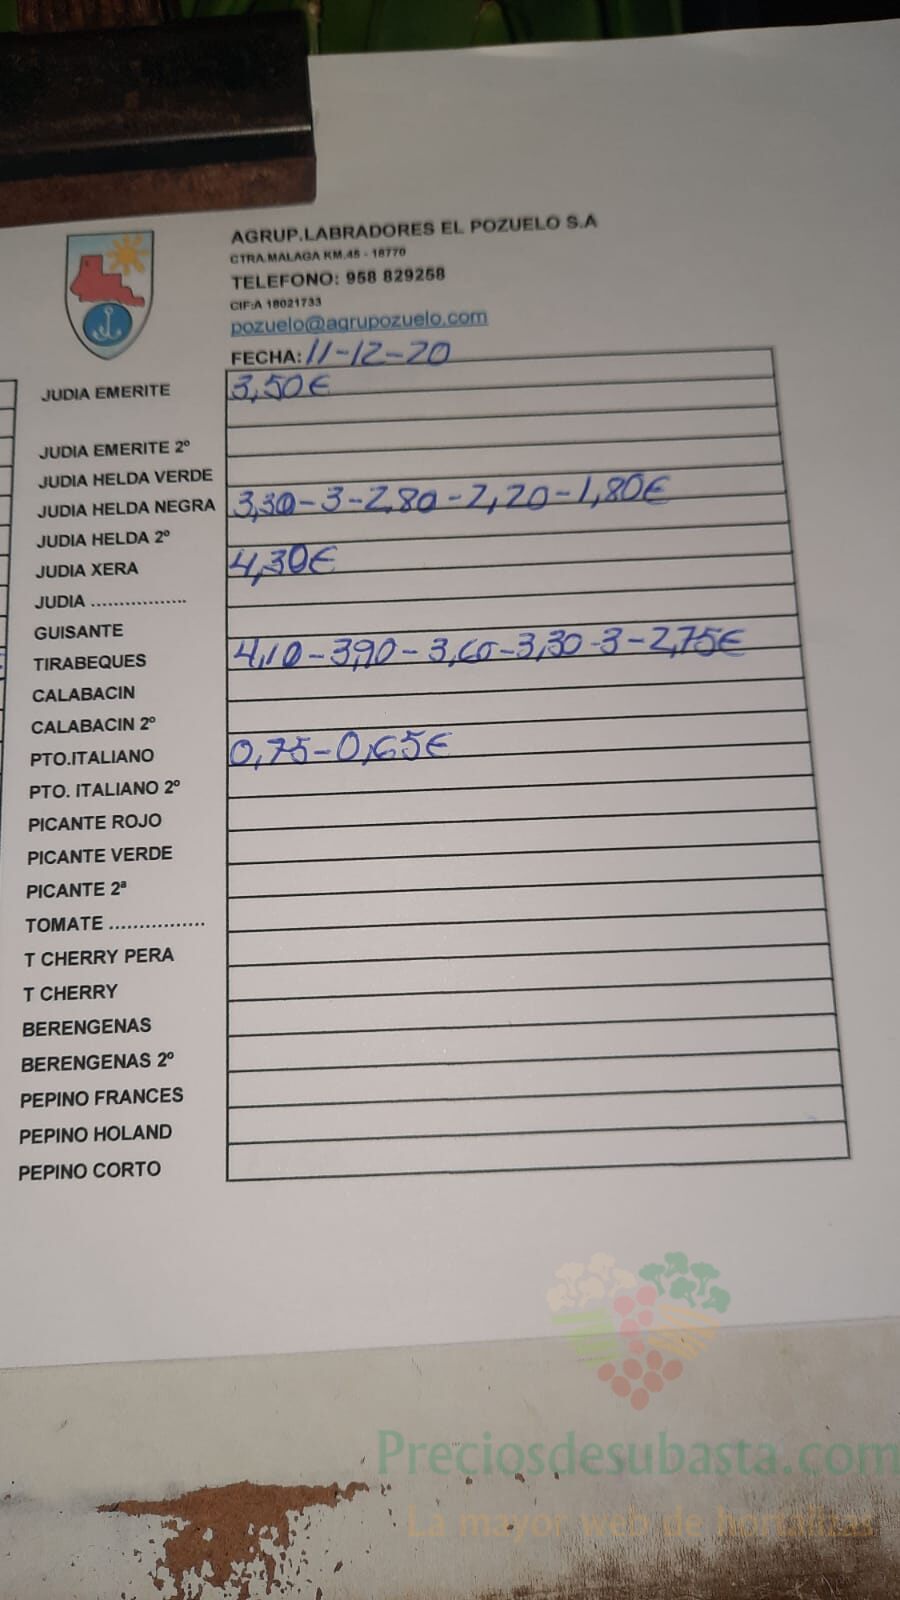 AGRUP.LABRADORES EL POZUELO S.A
CTRA.MALAGA KM.45 - 18770
TELEFONO: 958 829258
CIF:A 18021733
pozuelo@agrupozuelo.com
FECHA: 11-12-20
JUDIA EMERITE 3,50€
JUDIA EMERITE 2º
JUDIA HELDA VERDE
JUDIA HELDA NEGRA 3,30-3-2,80-2,20-1,80€
JUDIA HELDA 2º
JUDIA XERA 4,30€
JUDIA .................
GUISANTE
TIRABEQUES 4,10-3,90-3,60-3,30-3-2,75€
CALABACIN
CALABACIN 2º
PTO.ITALIANO 0,75-0,65€
PTO. ITALIANO 2º
PICANTE ROJO
PICANTE VERDE
PICANTE 2ª
TOMATE ................
T CHERRY PERA
T CHERRY
BERENGENAS
BERENGENAS 2º
PEPINO FRANCES
PEPINO HOLAND
PEPINO CORTO
Preciosdesubasta.com
La mayor web de hortalizas